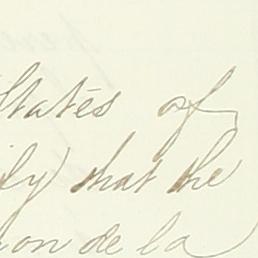 States of
ify that the
on de la